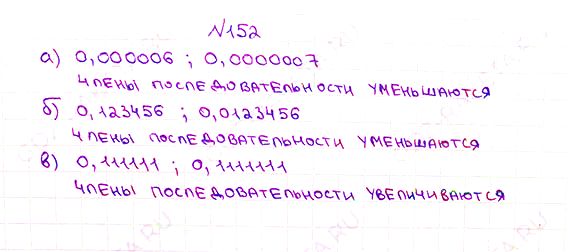 N152
а) 0,000006 ; 0,0000007
члены последовательности уменьшаются
б) 0,123456 ; 0,0123456
члены последовательности уменьшаются
в) 0,111111 ; 0,1111111
члены последовательности увеличиваются